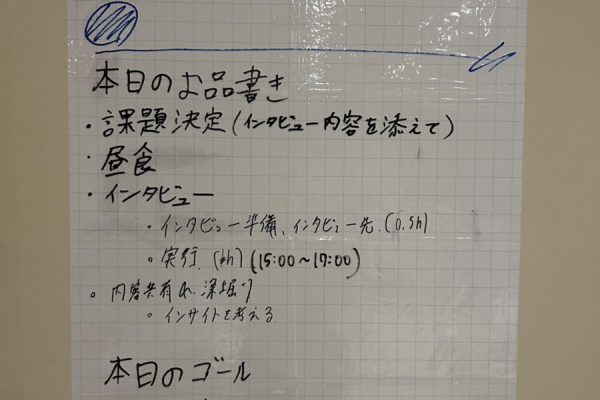 本日のお品書き
・課題決定(インタビュー内容を添えて)
・昼食
・インタビュー
・インタビュー準備、インタビュー先.(0.5h)
・実行. (15:00～17:00)
・内容共有 深堀り
・インサイトを考える
本日のゴール